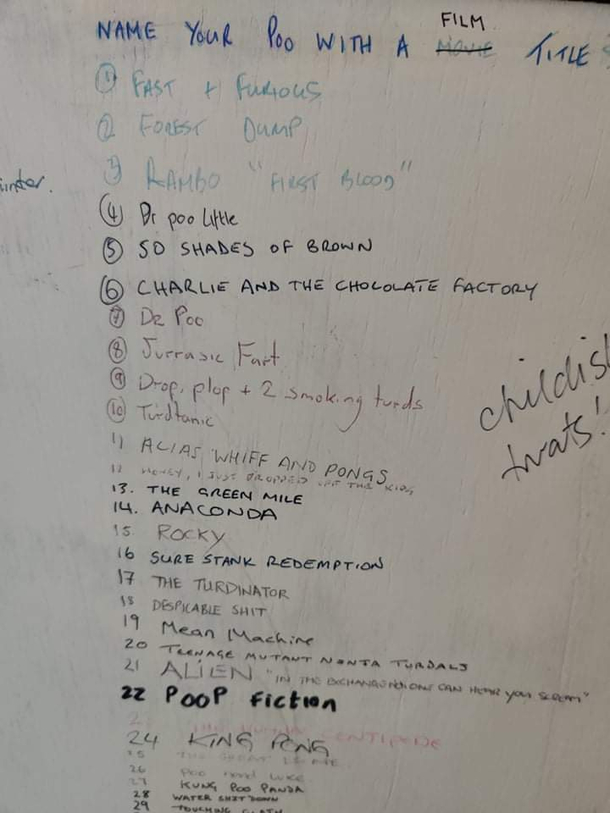 NAME YOUR POO WITH A MOVIE FILM TITLE
① FAST + FURIOUS
② FOREST DUMP
③ RAMBO "FIRST BLOOD"
④ Dr poo little
⑤ 50 SHADES OF BROWN
⑥ CHARLIE AND THE CHOCOLATE FACTORY
⑦ DR POO
⑧ Jurrasic Fart
⑨ Drop, plop + 2 smoking turds
⑩ Turdtanic
childish
twats!
11 ALIAS WHIFF AND PONGS
12 HONEY, I JUST DROPPED OFF THE KIDS
13. THE GREEN MILE
14. ANACONDA
15 ROCKY
16 SURE STANK REDEMPTION
17 THE TURDINATOR
18 DESPICABLE SHIT
19 Mean Machine
20 TEENAGE MUTANT NINTA TURDALS
21 ALIEN "IN THE EXCHANGE NO ONE CAN HEAR YOU SCREAM"
22 POOP FICTION
THE HUMAN CENTIPEDE
24 KING PONG
25 THE GREAT
26 POO HAND LUKE
27 KUNG POO PANDA
28 WATER SHIT DOWN
29 TOUCHING CLOTH